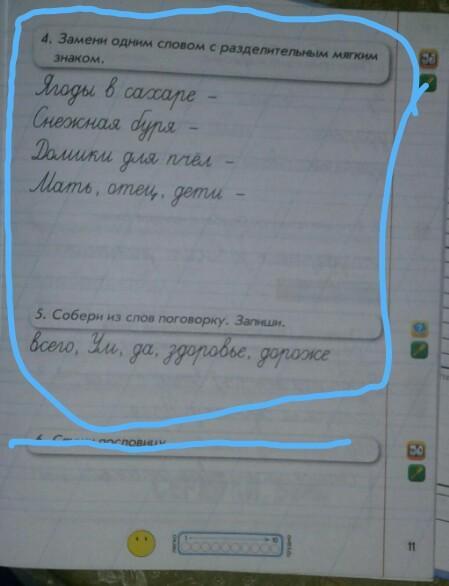 4. Замени одним словом с разделительным мягким
знаком.
Ягоды в сахаре –
Снежная буря –
Домики для пчёл –
Мать, отец, дети –
5. Собери из слов поговорку. Запиши.
всего, Ум, да, здоровье, дороже
6. пословицу
11